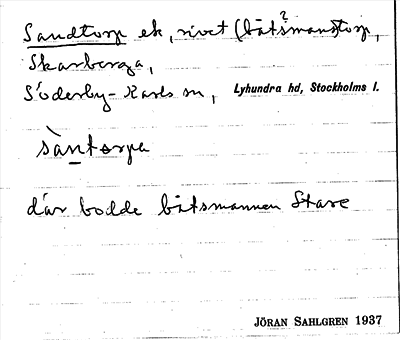 Sandtorp ek, rivet (båtsmanstorp, ?
Skarberga,
Söderby-Karls sn, Lyhundra hd, Stockholms l.
sàntorpa
där bodde båtsmannen Stare
JÖRAN SAHLGREN 1937